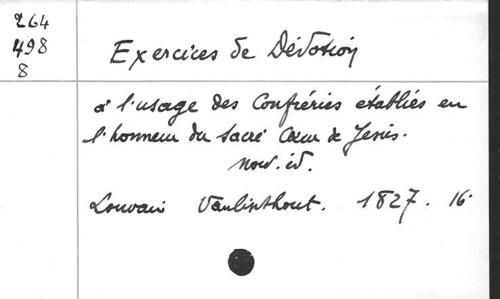 264
498
8
Exercices de Dévotion
à l'usage des Confréries établies en
l'honneur du Sacré Cœur de Jesus.
nouv. éd.
Louvain Vanlinthout. 1827. 16°